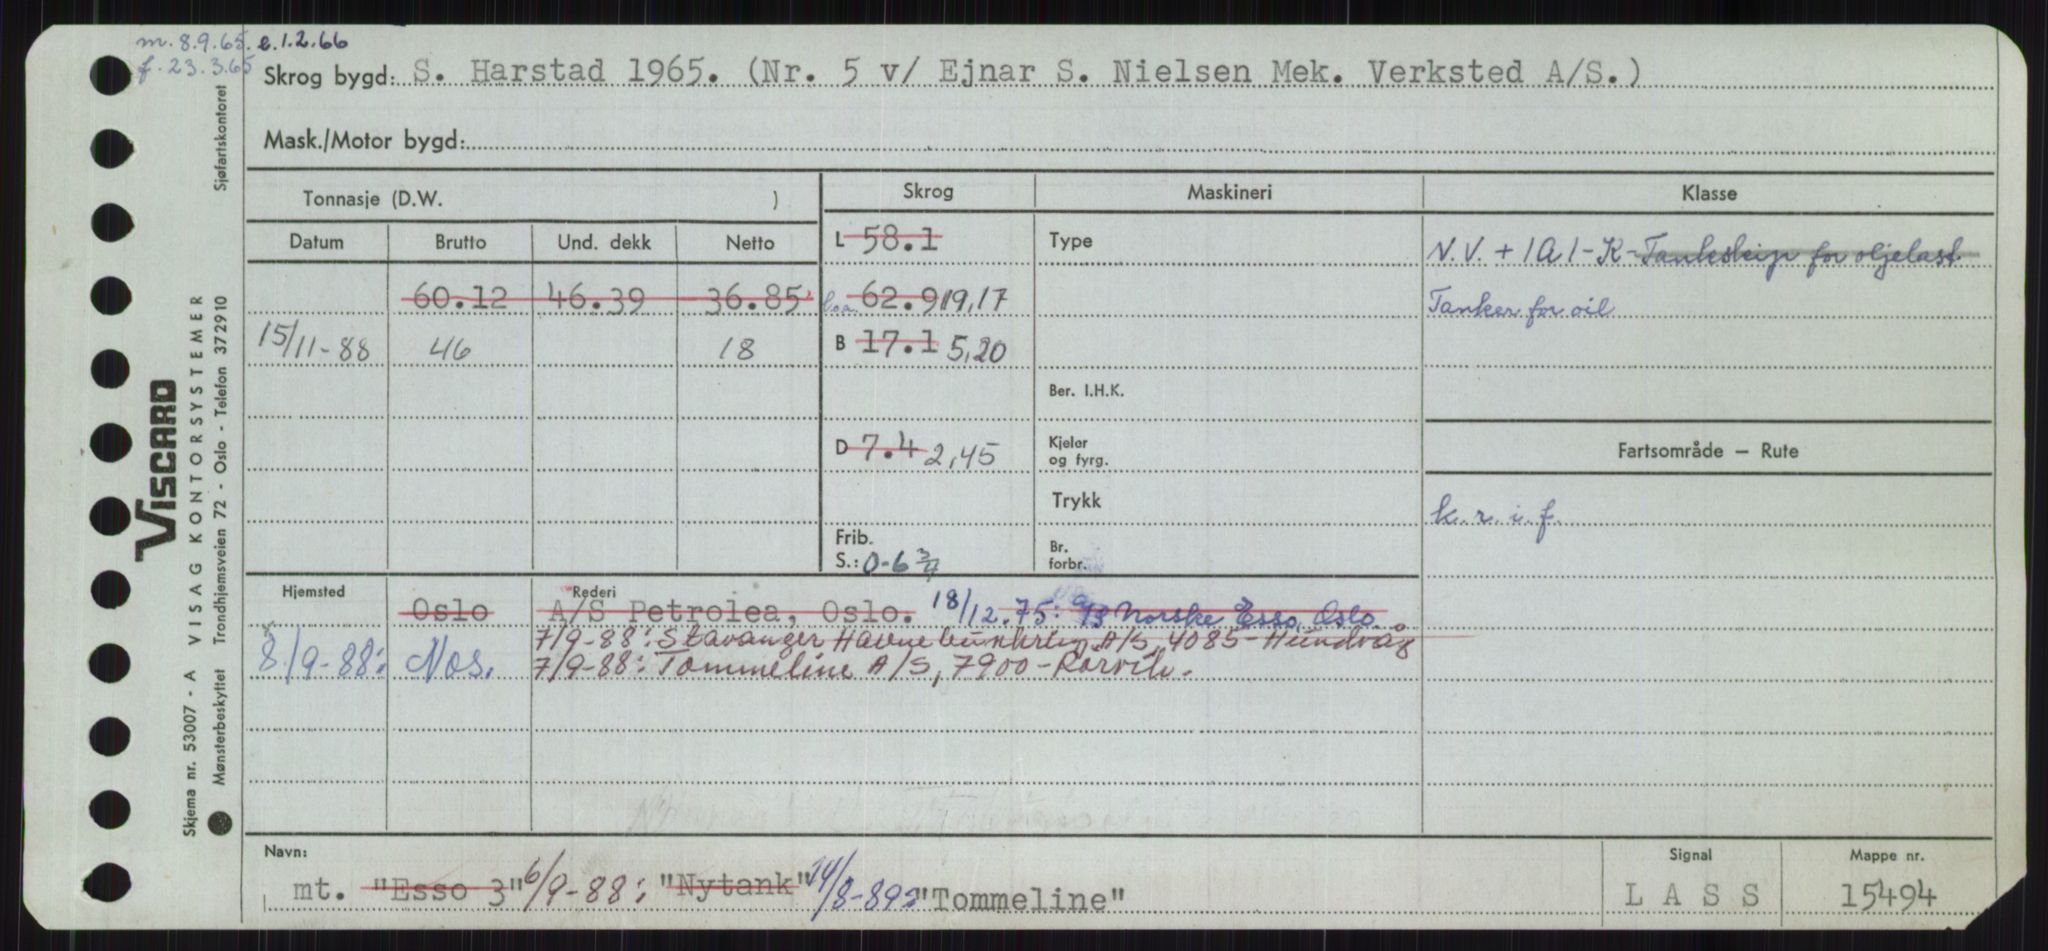 m. 8.9.65. e.1.2.66
f. 23.3.65
Skrog bygd: S. Harstad 1965. (Nr. 5 v/ Ejnar S. Nielsen Mek. Verksted A/S.)
Mask./Motor bygd:
Tonnasje (D.W. )
Skrog
Maskineri
Klasse
Datum Brutto Und. dekk Netto
L 58.1
Type
N.V. + 1A1-K-Tankskip for oljelast
60.12 46.39 36.85
l.o.a. 62.9 19,17
Tanker for oil
15/11-88 46 18
B 17.1 5,20
Ber. I.H.K.
D 7.4 2,45
Kjeler
og fyrg.
Fartsområde — Rute
Trykk
k. r. i. f.
Frib.
S.: 0-6 3/4
Br.
forbr.
Hjemsted
Rederi
Oslo A/S Petrolea, Oslo. 18/12.75: A/S Norske Esso, Oslo.
7/9-88: Stavanger Havnebunkring A/S, 4085-Hundvåg
8/9-88: Nos. 7/9-88: Tommeline A/S, 7900-Rørvik.
Navn:
mt. "Esso 3" 6/9-88: "Nytank" 14/8-89: "Tommeline"
Signal
LASS
Mappe nr.
15494
VISCARD
VISAG KONTORSYSTEMER
Skjema nr. 53007 - A
Mønsterbeskyttet Trondhjemsveien 72 - Oslo - Telefon 372910 Sjøfartskontoret